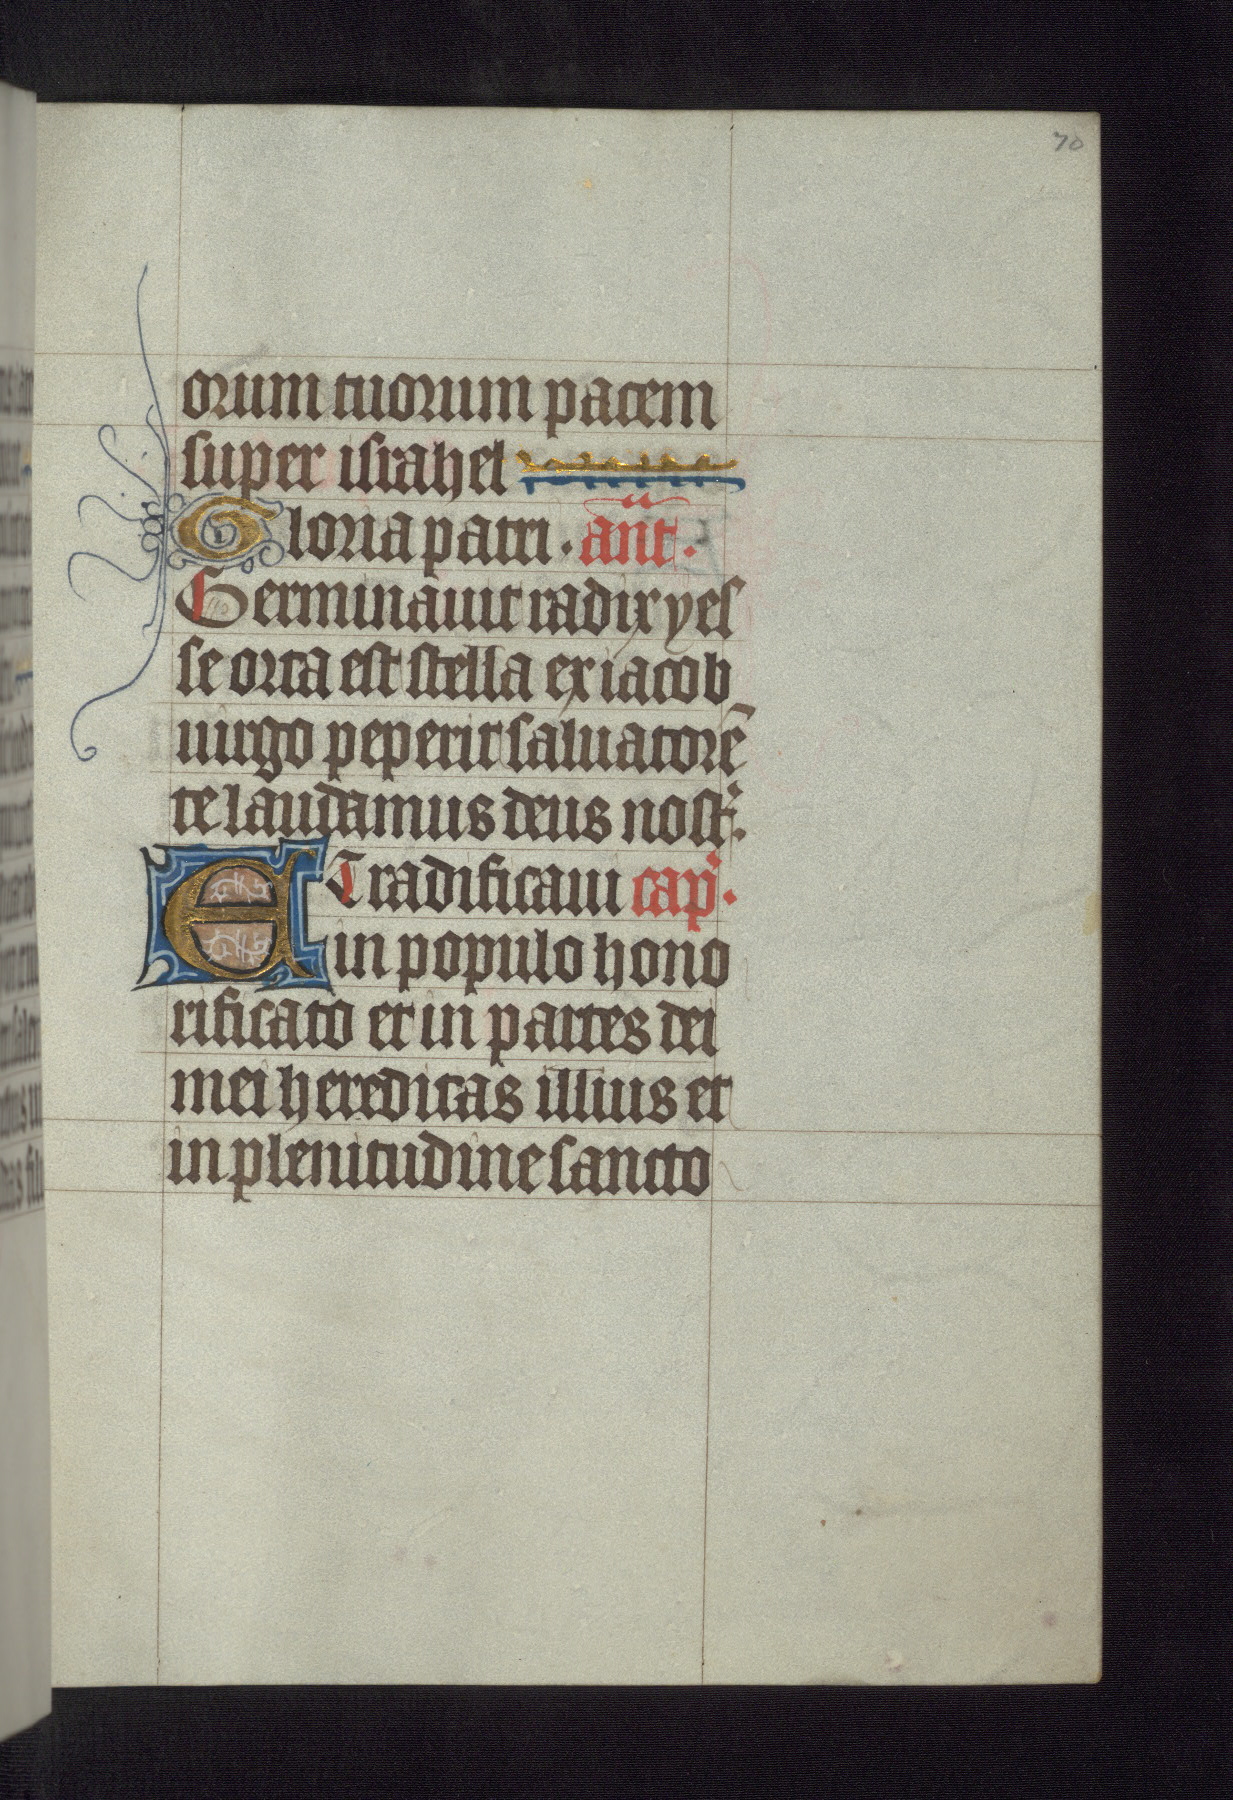 70
orum tuorum pacem
super israhel
Gloria patri. an̄t.
Germinauit radix yes
se orta est stella ex iacob
uirgo peperit saluatorē
te laudamus deus nost̉.
ET radificaui cap̉.
in populo hono
rificato et in partes dei
mei hereditas illius et
in plenitudine sancto